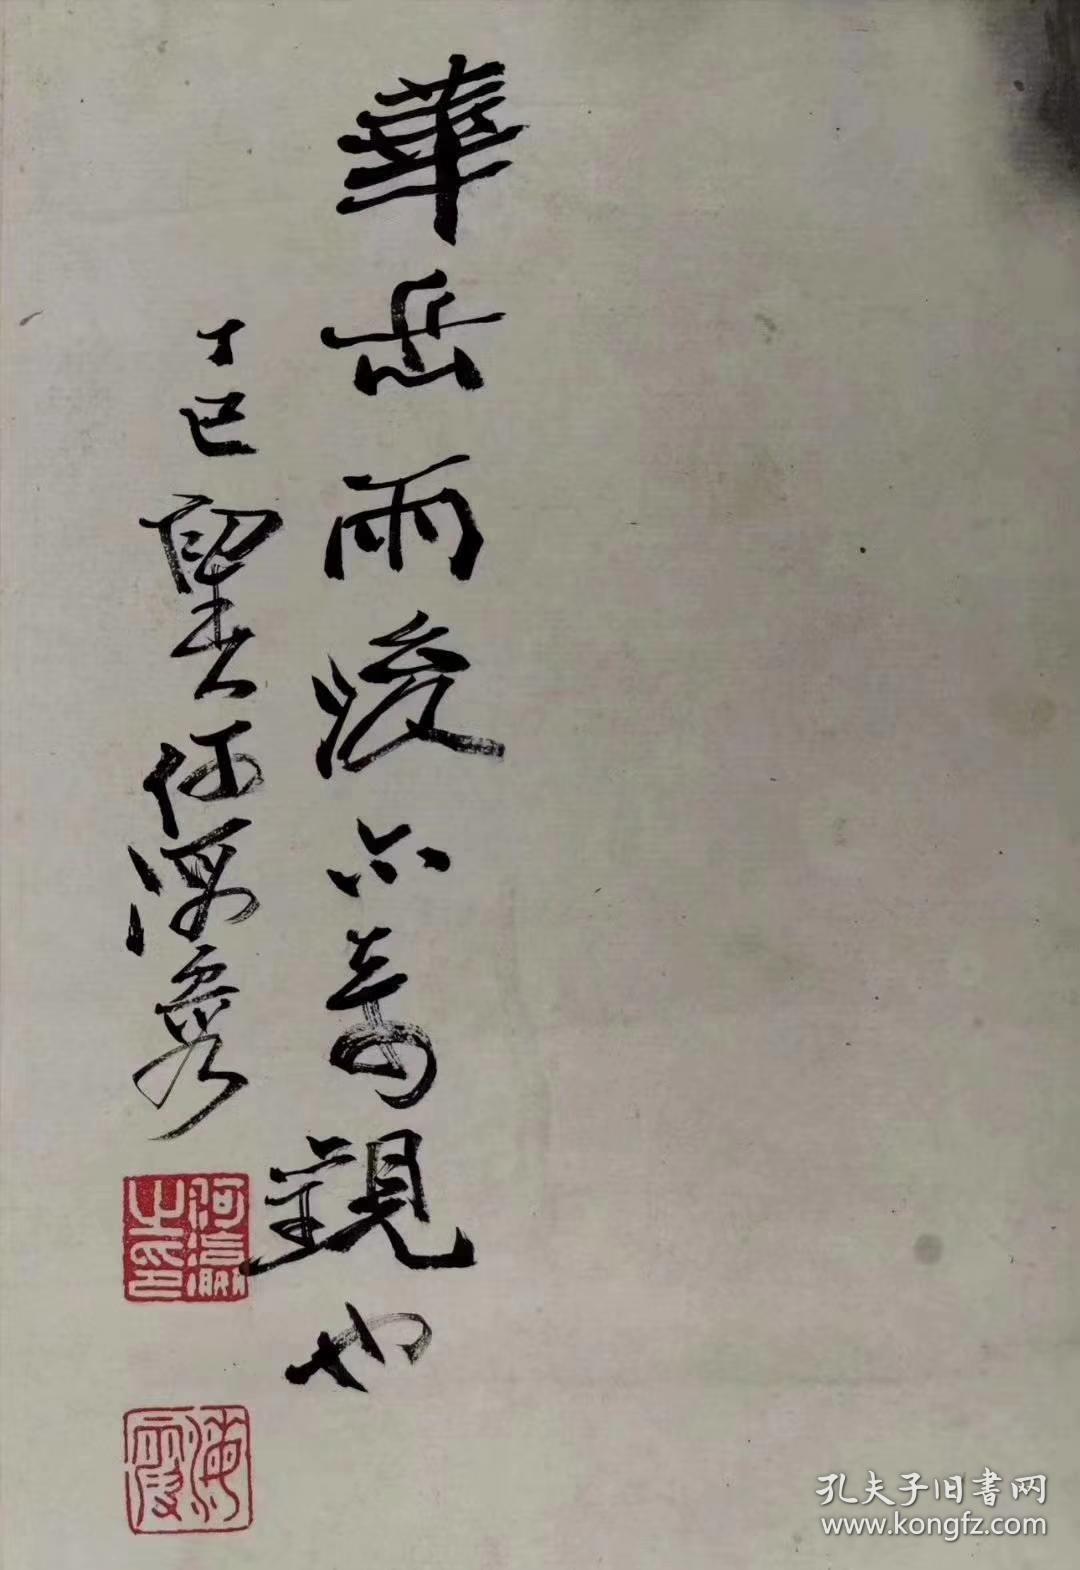 華岳雨後亦奇觀也
丁巳 何海霞
何瀛之印
海霞
孔夫子旧書网
www.kongfz.com